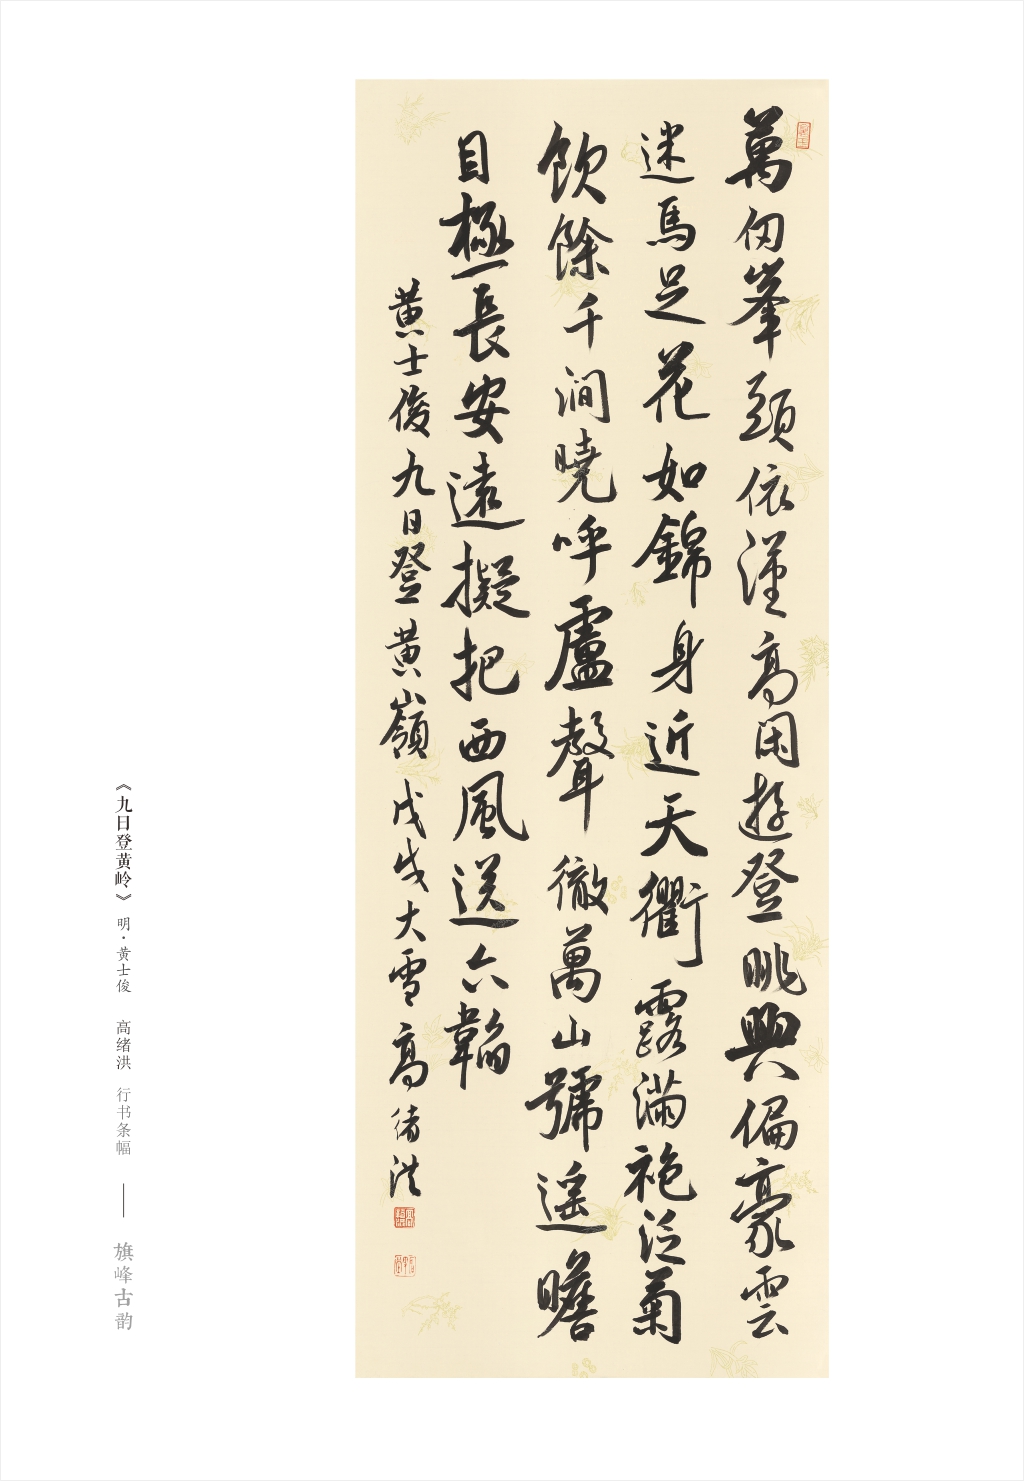 萬仞峯頭依漢高閑遊登眺興偏豪雲
迷馬足花如錦身近天衢露滿袍泛菊
飲餘千澗曉呼盧聲徹萬山號遥瞻
目極長安遠擬把西風送六韜
黄士俊九日登黄嶺戊戌大雪高绪洪
《九日登黄岭》 明·黄士俊 高绪洪 行书条幅 —— 旗峰古韵